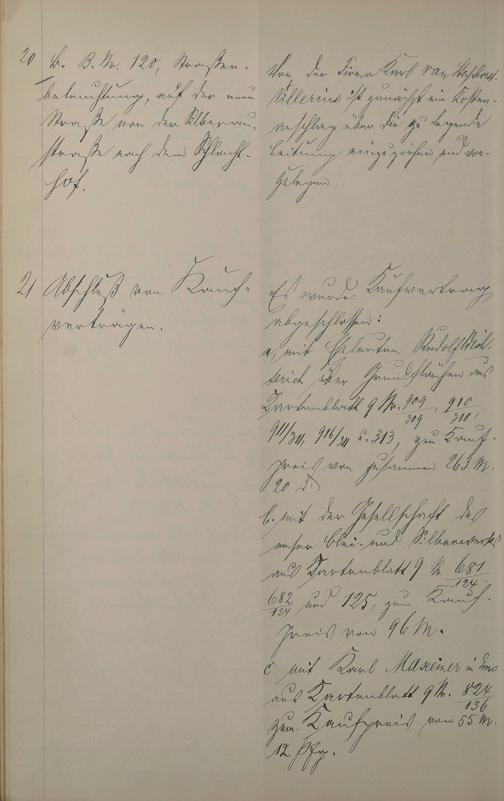 20
B. B. Nr. 120, Straßen-
beleuchtung, auf der neuen
Straße von der Silberau-
straße nach dem Schlacht-
hof.
Von der Firma Karl van
ist zunächst ein Kosten-
anschlag über die zu legende
Leitung einzuziehen und vor-
zulegen.
21
Abschluß von Kauf-
verträgen.
Es wurde Kaufvertrag
abgeschlossen:
a, mit Eheleuten Rudolf
über Grundflächen aus
Kartenblatt 9 Nr. 909/309, 910/310,
911/311, 916/311 u. 313, zum Kauf-
preis von zusammen 263 M.
20 d.
b, mit der Gesellschaft des
Emser Blei- und Silberwerks
aus Kartenblatt 9 Nr. 681/124
682/124 und 125, zum Kauf-
preis von 96 M.
c mit Karl Maxeiner in Ems
aus Kartenblatt 9 Nr. 824/136
zum Kaufpreis von 55 M.
12 Pfg.